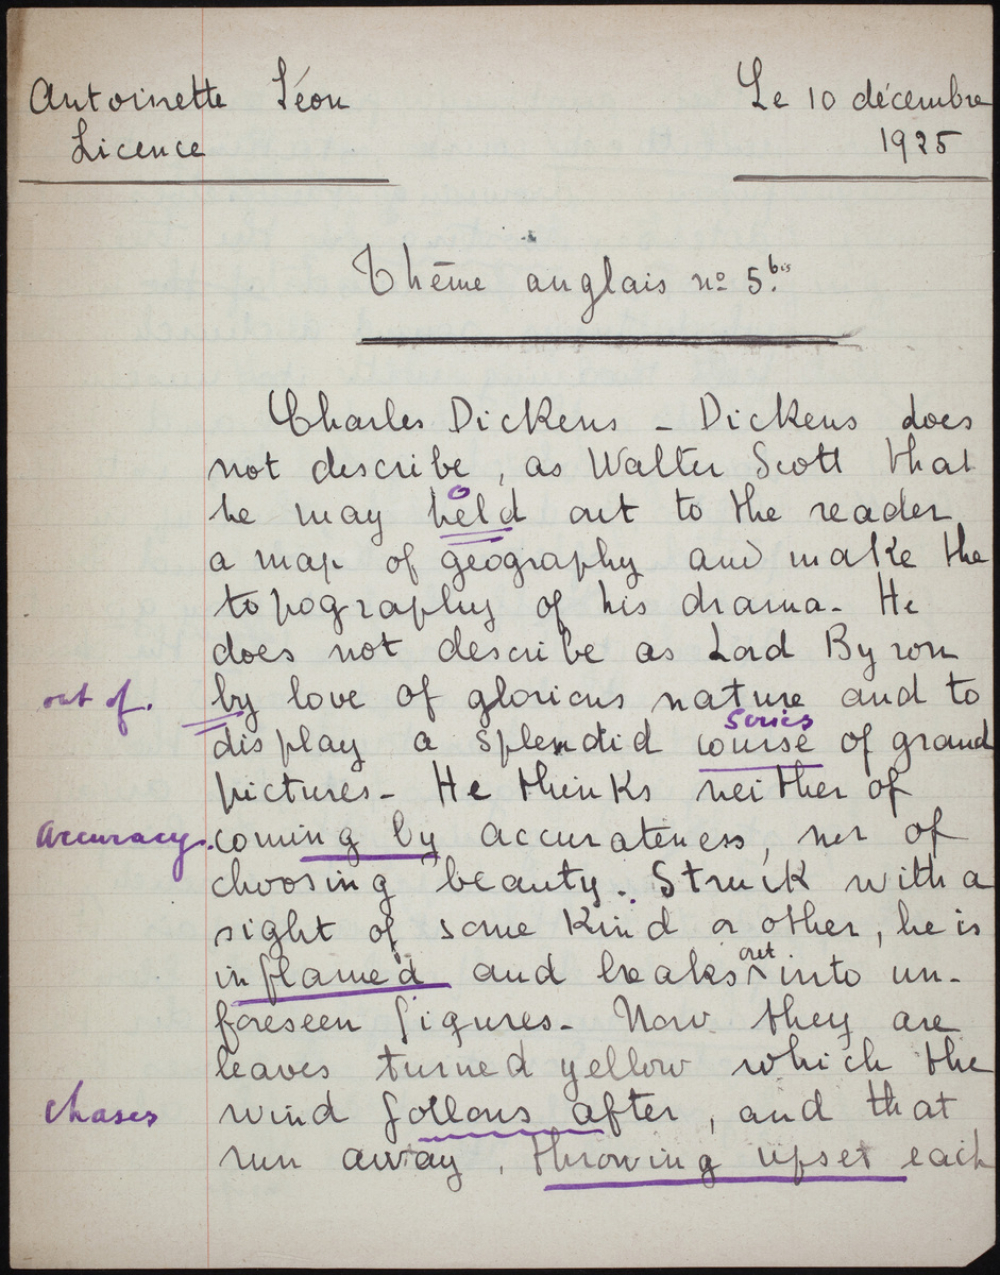 Antoinette Léon
Le 10 décembre
Licence
1925
Thême anglais nº 5.bis
Charles Dickens - Dickens does
not describe, as Walter Scott that
o
he may held out to the reader
a map of geography and make the
topography of his drama. He
does not describe as Lord Byron
out of. by love of glorious nature and to
series
display a splendid course of grand
pictures. He thinks neither of
accuracy. coming by accurateness, nor of
choosing beauty. Struck with a
sight of some kind or other, he is
out
inflamed and breaks into un-
foreseen figures. Now they are
leaves turned yellow which the
chases wind follows after, and that
run away, throwing upset each